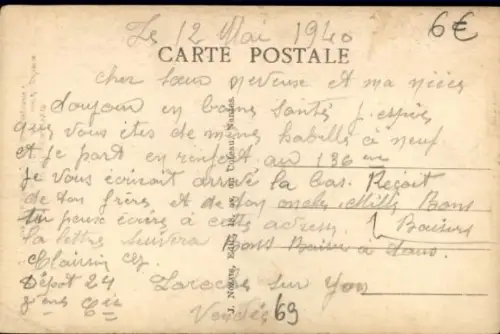 Le 12 Mai 1940
6€
CARTE POSTALE
cher sœur neveuse et ma nièce
toujour en bonne santés j'espère
que vous êtes de même habillé à neuf
et je part en renfort au 136 eme
je vous écrirait arrivé la bas. Reçoit
de ton frère et de ton oncle mille Bons
tu peux écrire à cette adresse Baisers
la lettre suivera Bons à tous
Dépôt 24 Laroche sur Yon
7 eme Cie
Vendée 69
J. Nozais, Edit., Nantes